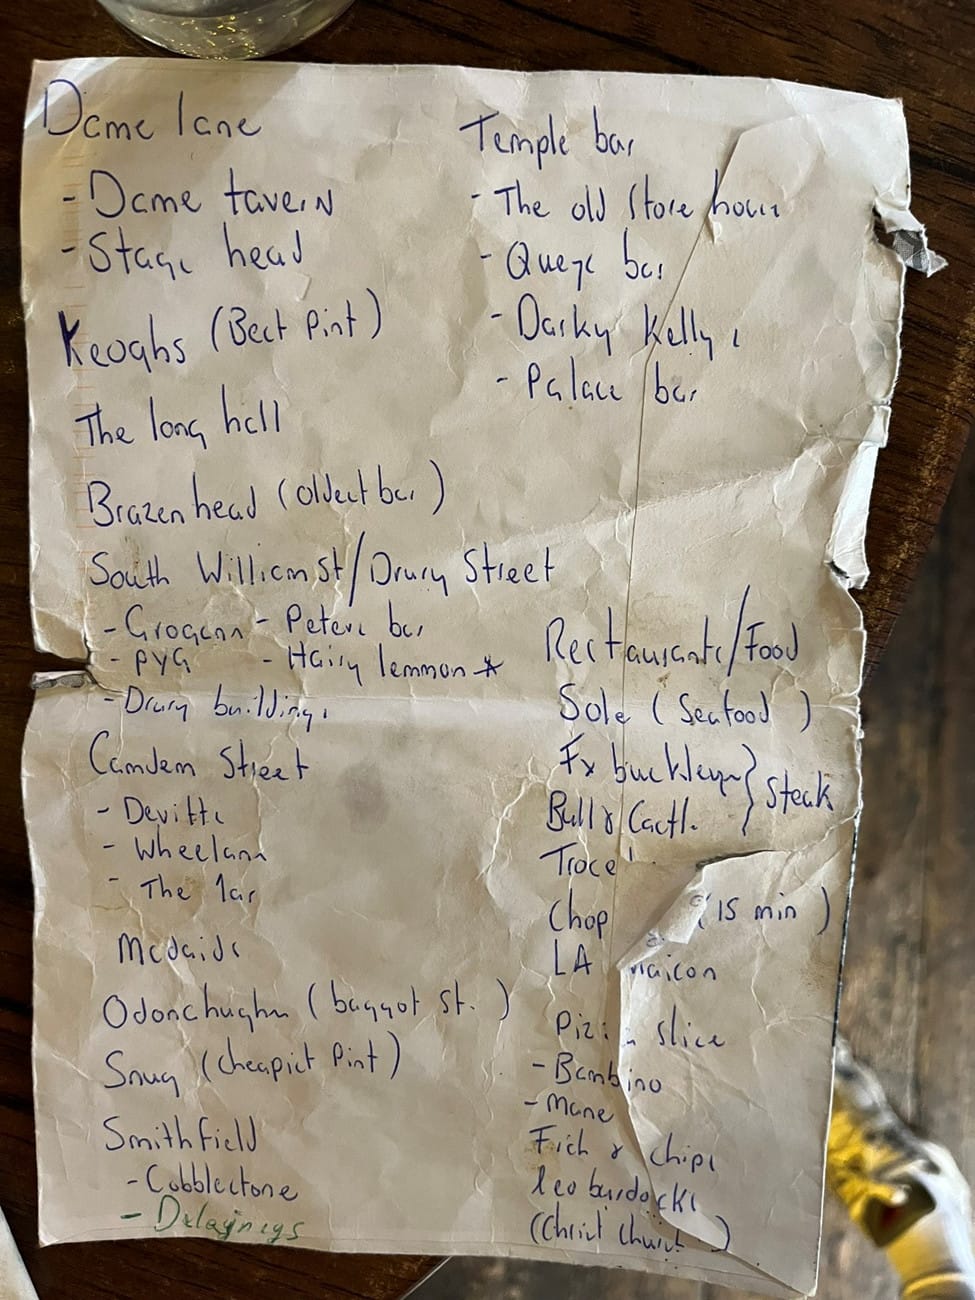 Dame lane
- Dame tavern
- Stags head
Keoghs (Best Pint)
The long hall
Brazen head (oldest bar)
South William St/Drury Street
- Grogans - Peters bar
- PYG - Hairy lemmon *
- Drury buildings
Camden Street
- Devitts
- Wheelans
- The 1ar
Mcdaids
Odonohughs (baggot st.)
Snug (cheapist Pint)
Smithfield
- Cobblestone
- Delayneys
Temple bar
- The old Store house
- Quays bar
- Darky Kellys
- Palace bar
Restaurants/Food
Sole (Seafood)
Fx buckleys } Steak
Bull & Castle
Chop (15 min)
LA
slice
- Bambino
- Mane
Fish & Chips
leo burdocks
(Christ Church)